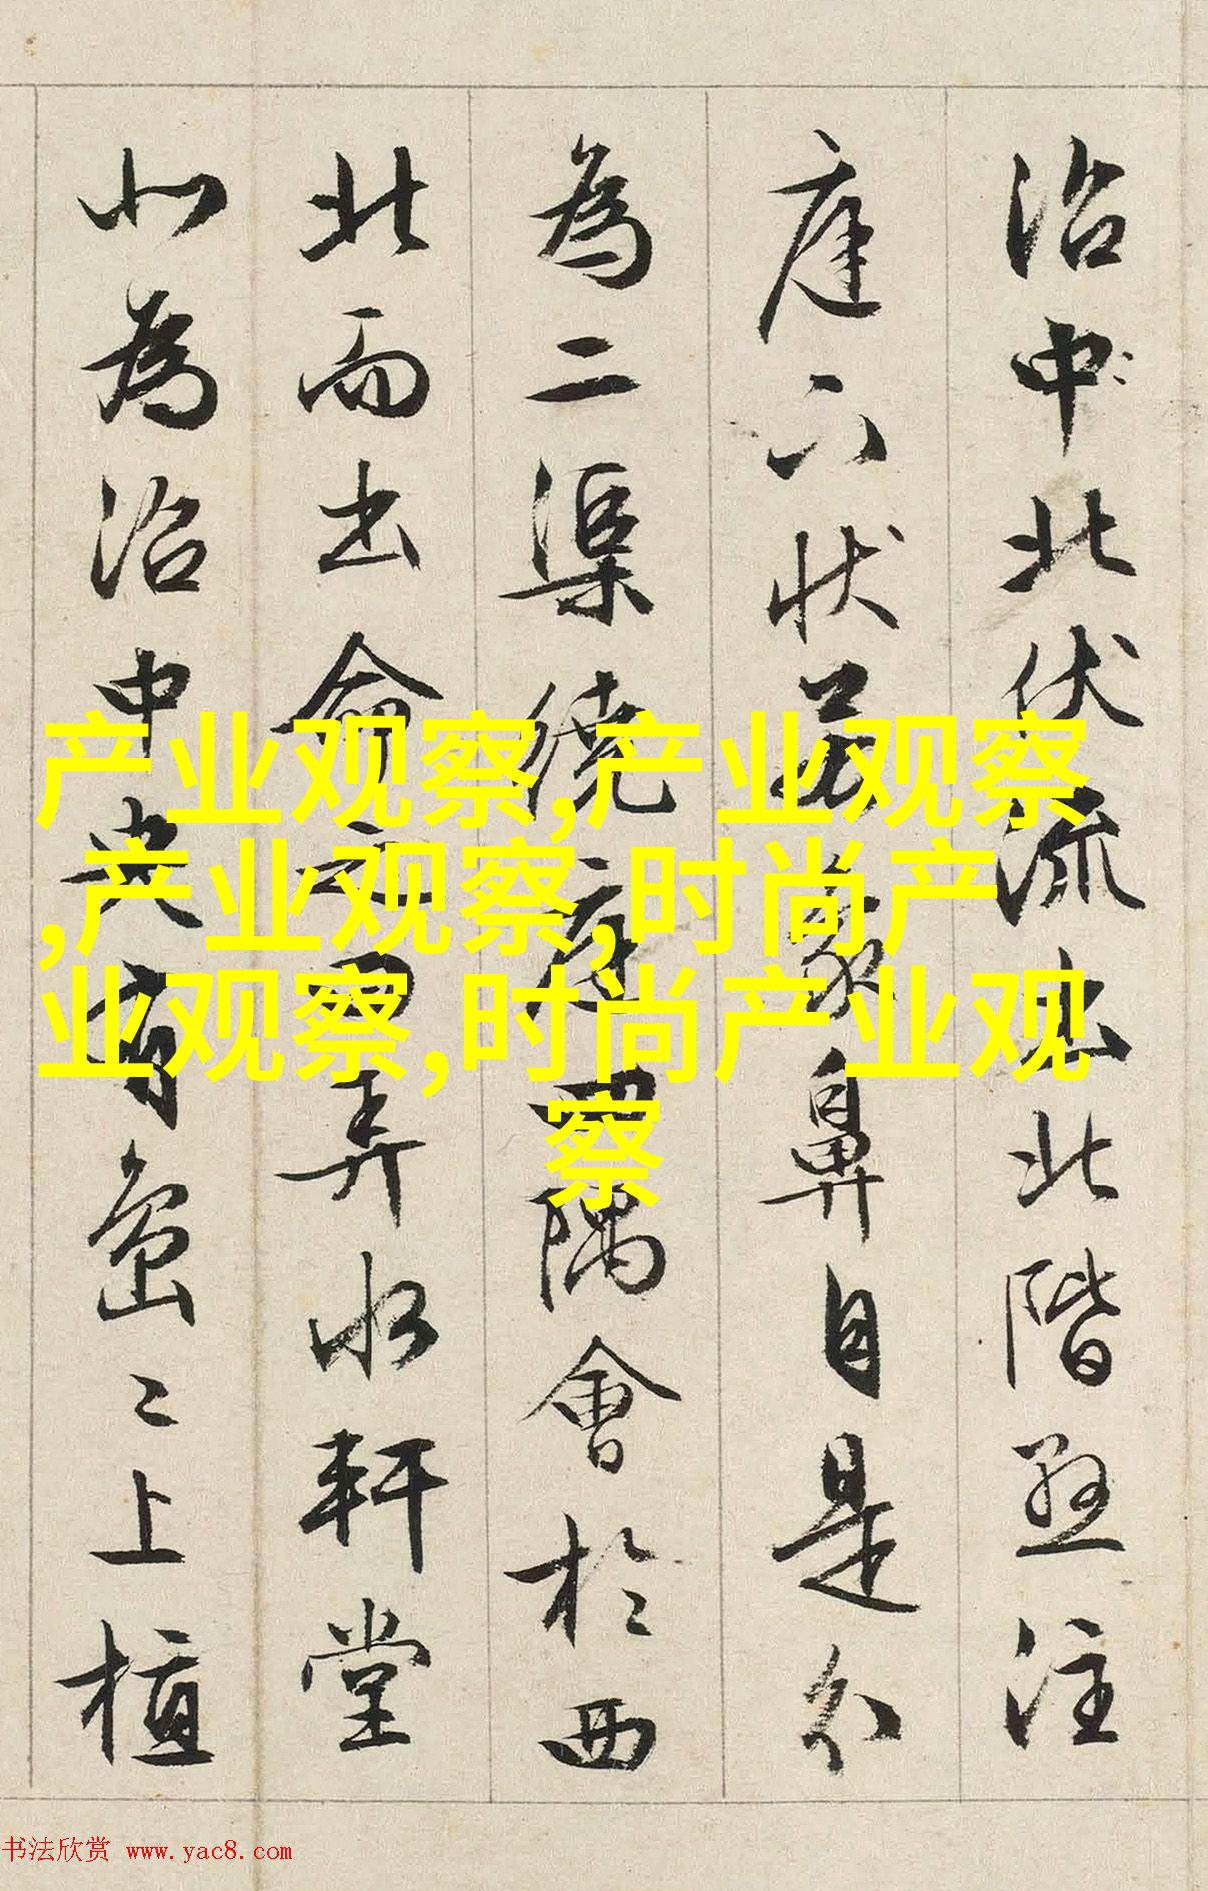 沼中北伏流出北階懸注
庭下狀若象鼻自是分
為二渠繞庭四隅會於西
北而出命之曰弄水軒堂
北為沼中央有島〻上植
产业观察,产业观察
,产业观察,时尚产
业观察,时尚产业观
察
书法欣赏 www.yac8.com